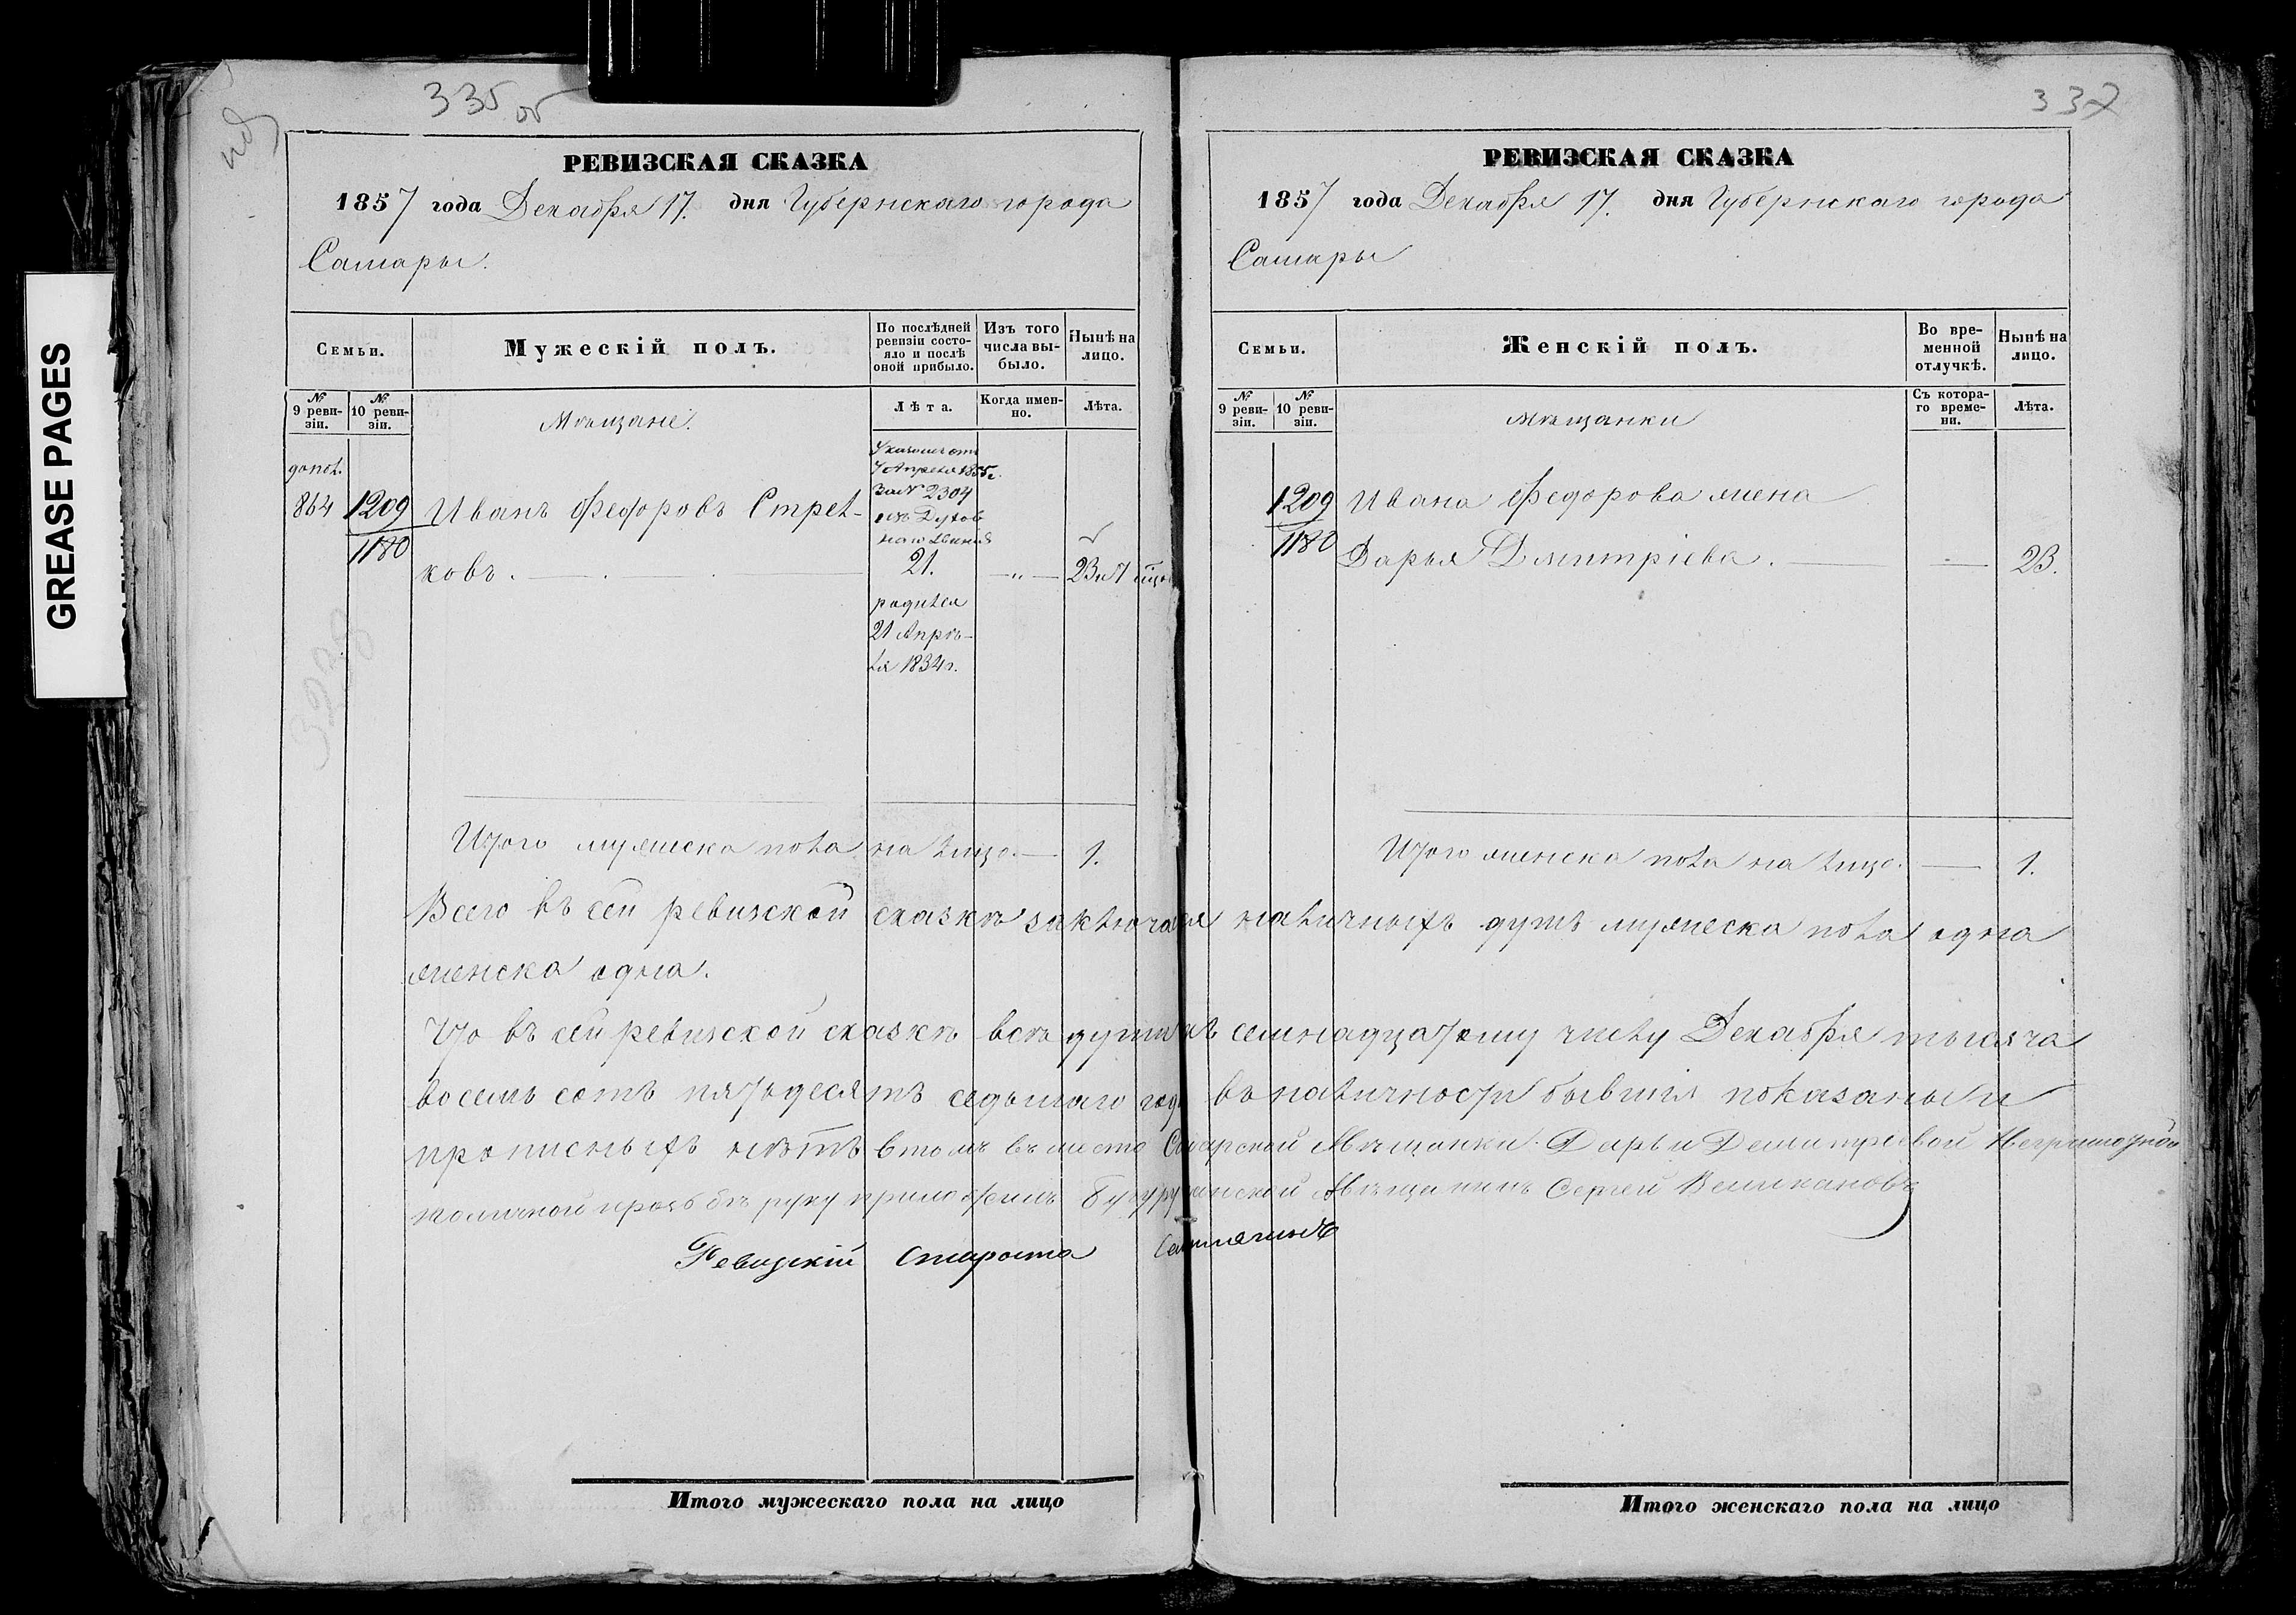 GREASE PAGES
335 об
РЕВИЗСКАЯ СКАЗКА
1857 года Декабря 17. дня Губернскаго города
Самары.
Семьи.
Мужескій полъ.
По послѣдней ревизіи состояло и послѣ оной прибыло.
Изъ того числа выбыло.
Нынѣ на лицо.
№ 9 ревизіи.
№ 10 ревизіи.
Мѣщане.
Лѣта.
Когда именно.
Лѣта.
допол.
864
1209
1180
Иванъ Федоровъ Стрел-
ковъ.
7 Апреля 1855 г.
За № 2304
изъ Духов
наго званія
21.
23
родился
21 Апрѣ-
ля 1834 г.
Итого мужеска пола на лицо. 1.
337
РЕВИЗСКАЯ СКАЗКА
1857 года Декабря 17. дня Губернскаго города
Самары
Семьи.
Женскій полъ.
Во временной отлучкѣ.
Нынѣ на лицо.
№ 9 ревизіи.
№ 10 ревизіи.
Мѣщанки
Съ котораго времени.
Лѣта.
1209
1180
Ивана Федорова жена
Дарья Дмитріева. 23.
Итого женска пола на лицо. 1.
Всего въ сей ревизской сказкѣ заключается наличныхъ душъ мужеска пола одна
женска одна.
Что въ сей ревизской сказкѣ всѣ души къ семнадцатому числу Декабря тысяча
восемь сотъ пятьдесятъ седьмаго года въ наличности бывшія показаны и
прописныхъ нѣтъ втомъ вместо Самарской Мѣщанки Дарьи Демитревой
личной прозьбѣ руку приложилъ Бугурусланской Мѣщанинъ Сергей Великановъ
Ревизскій Староста
Итого мужескаго пола на лицо
Итого женскаго пола на лицо